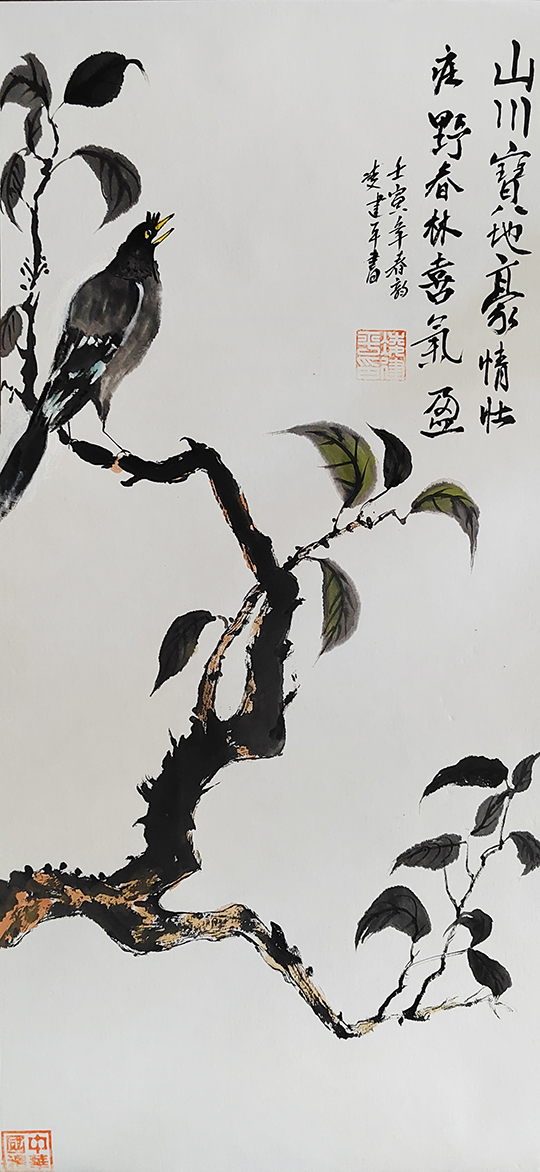 山川寶地豪情壮
野春林喜氣盈
壬寅年春韵
凌建平書
中華